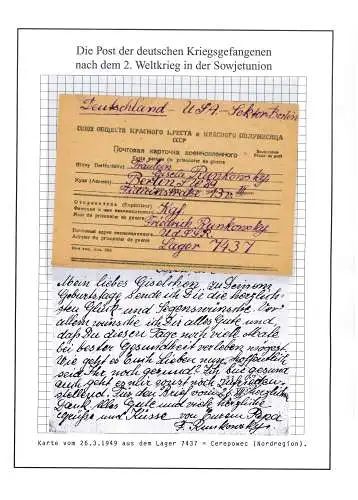 Die Post der deutschen Kriegsgefangenen
nach dem 2. Weltkrieg in der Sowjetunion
Deutschland - USA - Sektor Berlin
СОЮЗ ОБЩЕСТВ КРАСНОГО КРЕСТА и КРАСНОГО ПОЛУМЕСЯЦА
СССР
Почтовая карточка военнопленного
Carte postale du prisonnier de guerre
Кому (Destinataire) Fräulein
Gisela Runkowsky
Куда (Adresse) Berlin
Отправитель (Expéditeur) Kgf.
Фамилия и имя военнопленного
Nom du prisonnier de guerre Friedrich Runkowsky
Почтовый адрес военнопленного UdSSR
Adresse du prisonnier de guerre Lager 7437
Mein liebes Giselchen, zu Deinem
Geburtstage sende ich Dir die herzlich-
sten Glück- und Segenswünsche. Vor
allem wünsche ich Dir alles Gute und
daß Du diesen Tag noch viele Male
bei bester Gesundheit verleben mögest.
Wie geht es Euch Lieben nun, hoffentlich
seid Ihr noch gesund? Ich bin gesund
auch geht es mir sonst noch zufrieden-
stellend. Für den Brief vom herzlichen
Dank. Alles Gute und viele herzliche
Grüße und Küsse von Eurem Papa
F. Runkowsky.
Karte vom 26.3.1949 aus dem Lager 7437 = Cerepowec (Nordregion).